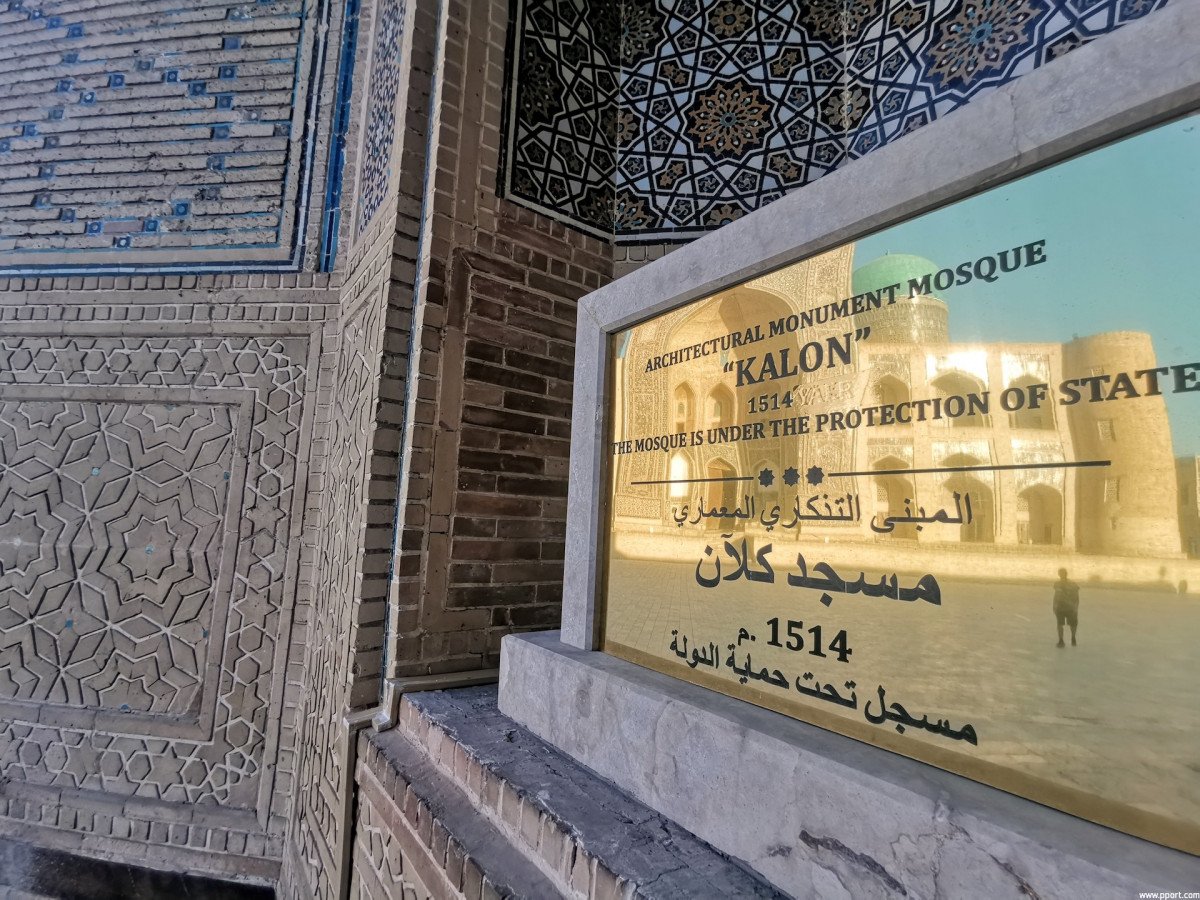 ARCHITECTURAL MONUMENT MOSQUE
“KALON”
1514
THE MOSQUE IS UNDER THE PROTECTION OF STATE
المبنى التذكاري المعماري
مسجد كلآن
1514 م.
مسجل تحت حماية الدولة
www.pport.com